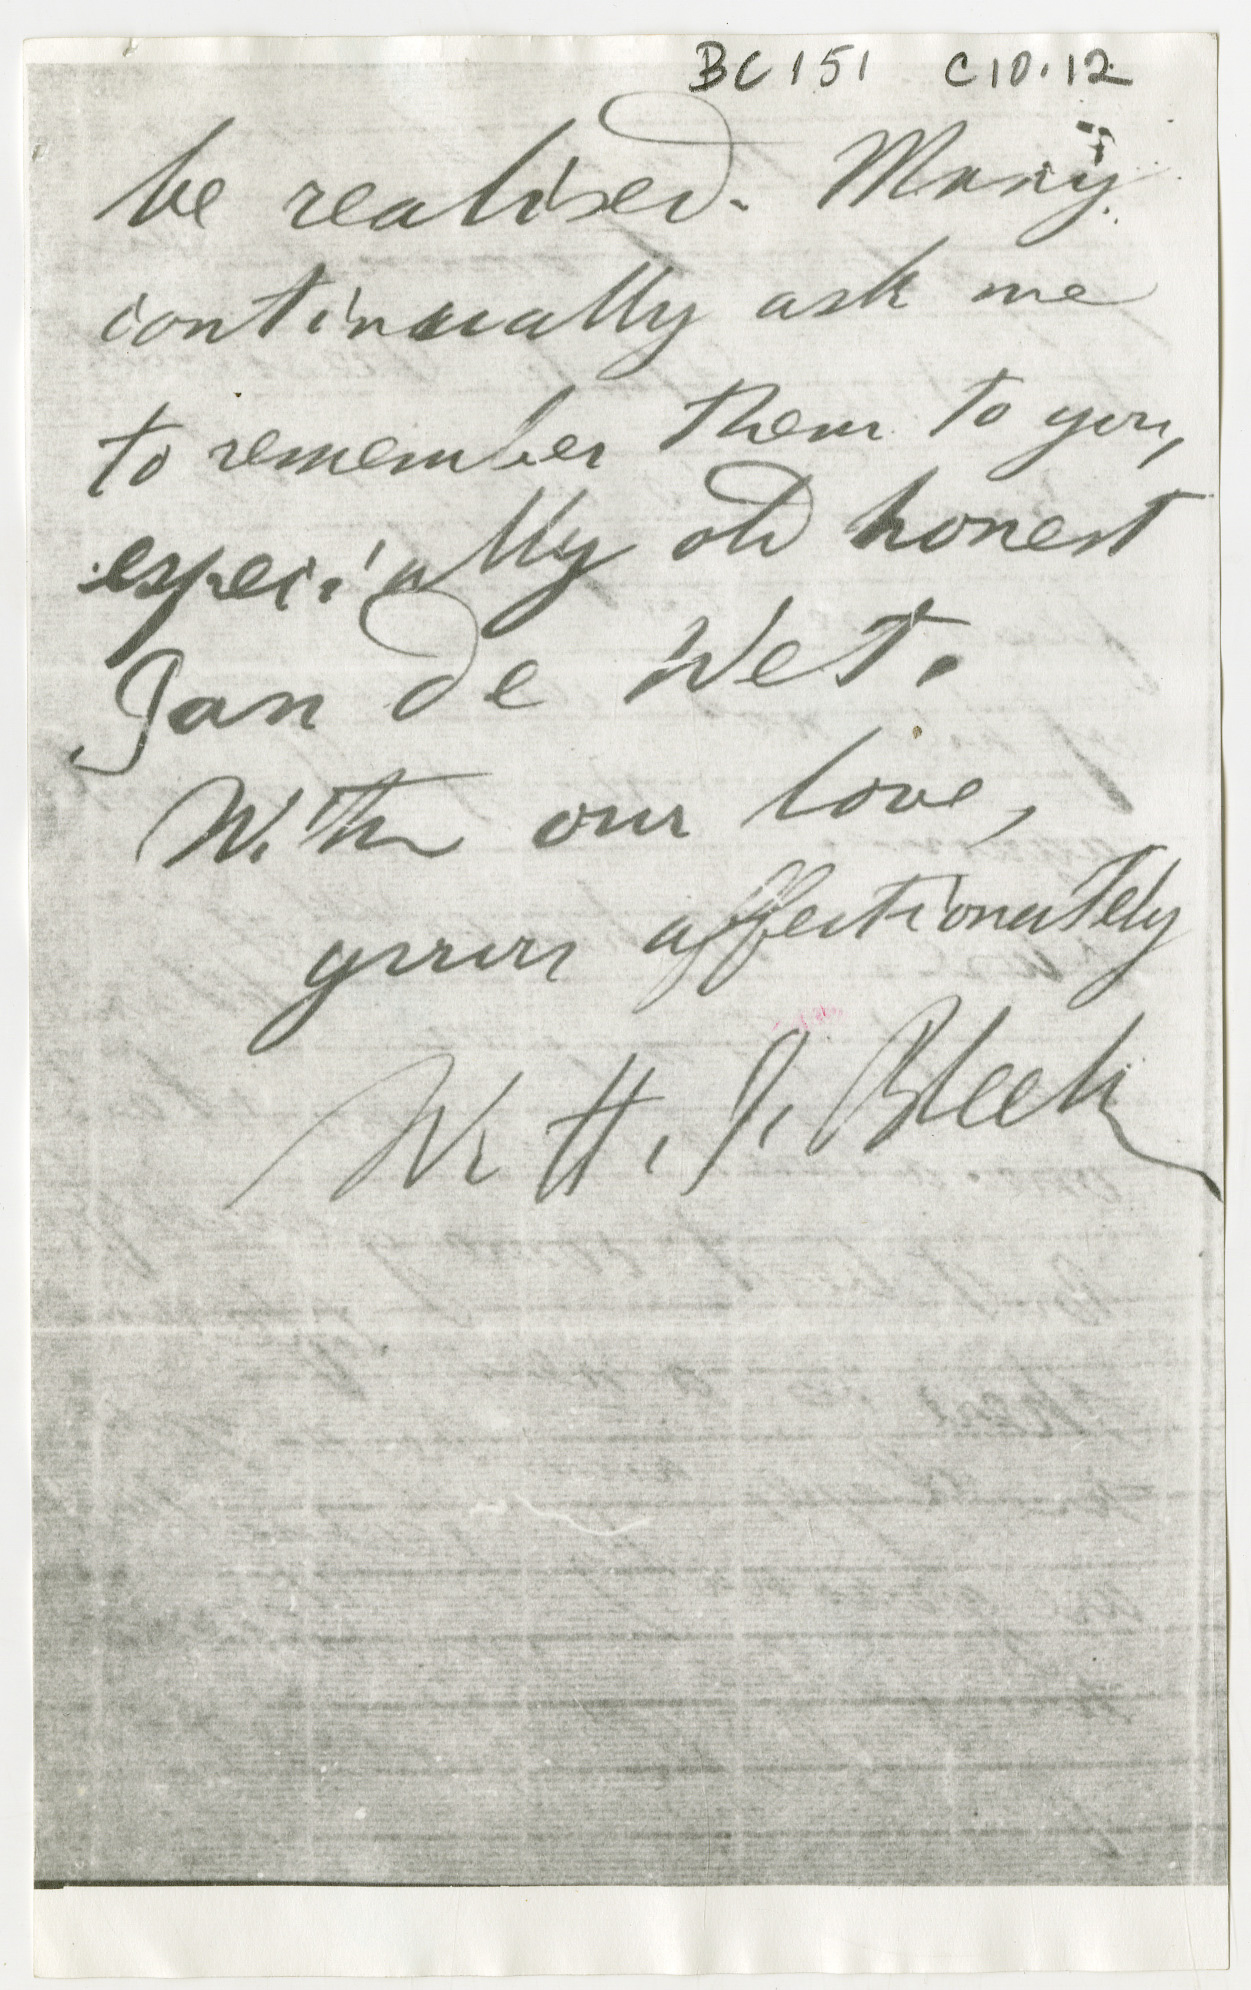 BC 151 C10.12
be realised. Many
continually ask me
to remember them to you,
especially old honest
Jan de Wet.
With our love,
yours affectionately
W. H. I. Bleek